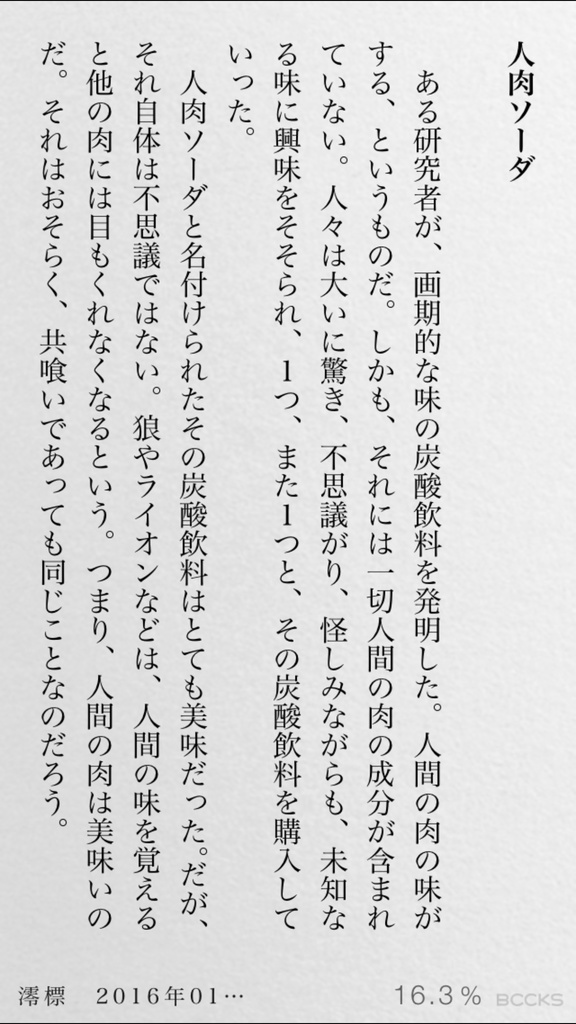 人肉ソーダ
　ある研究者が、画期的な味の炭酸飲料を発明した。人間の肉の味が
する、というものだ。しかも、それには一切人間の肉の成分が含まれ
ていない。人々は大いに驚き、不思議がり、怪しみながらも、未知な
る味に興味をそそられ、1つ、また1つと、その炭酸飲料を購入して
いった。
　人肉ソーダと名付けられたその炭酸飲料はとても美味だった。だが、
それ自体は不思議ではない。狼やライオンなどは、人間の味を覚える
と他の肉には目もくれなくなるという。つまり、人間の肉は美味いの
だ。それはおそらく、共喰いであっても同じことなのだろう。
澪標　2016年01…
16.3% BCCKS